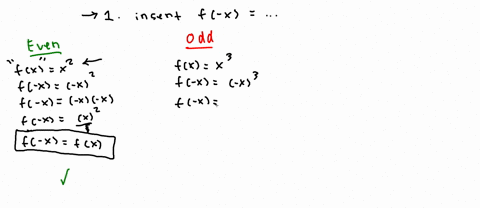 → 1. insert f(-x) = ...
Even
"f(x)" = x² ←
f(-x) = (-x)²
f(-x) = (-x)(-x)
f(-x) = (x)²
f(-x) = f(x)
✓
Odd
f(x) = x³
f(-x) = (-x)³
f(-x) =